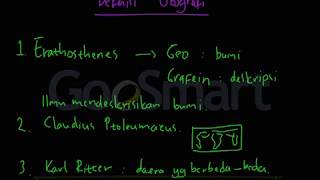 Definisi Geografi
1. Erathosthenes → Geo : bumi
Grafein : deskripsi
Ilmu mendeskrisikan bumi.
2. Claudius Ptoleumaeus.
3. Karl Ritter : daera yg berbeda-beda.
GeoSmart